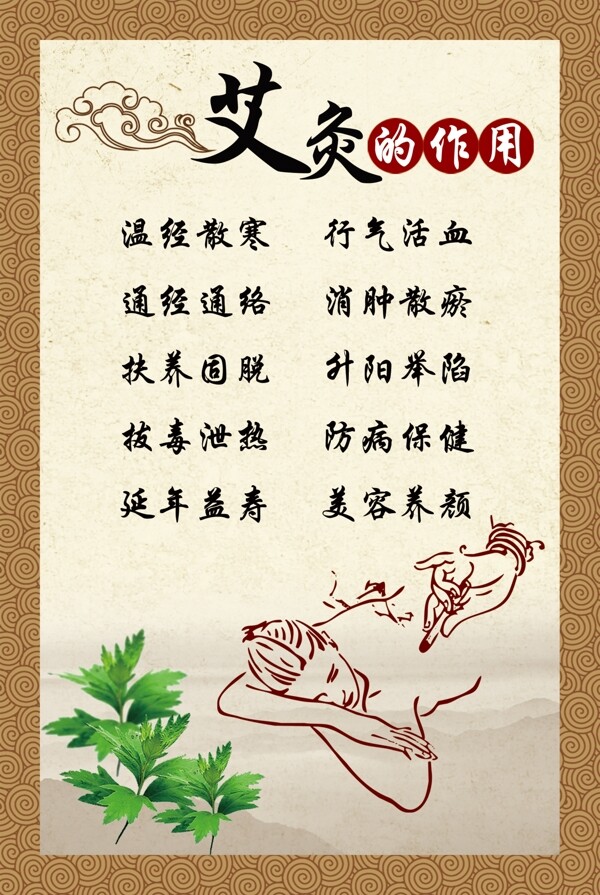 艾灸的作用
温经散寒 行气活血
通经通络 消肿散瘀
扶养固脱 升阳举陷
拔毒泄热 防病保健
延年益寿 美容养颜